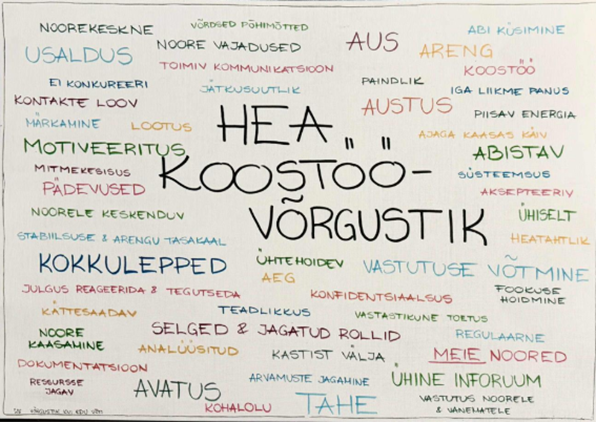 NOOREKESKNE
VÕRDSED PÕHIMÕTTED
ABI KÜSIMINE
USALDUS
NOORE VAJADUSED
AUS
ARENG
TOIMIV KOMMUNIKATSIOON
KOOSTÖÖ
EI KONKUREERI
JÄTKUSUUTLIK
PAINDLIK
IGA LIIKME PANUS
KONTAKTE LOOV
AUSTUS
PIISAV ENERGIA
MÄRKAMINE
LOOTUS
HEA
AJAGA KAASAS KÄIV
MOTIVEERITUS
ABISTAV
MITMEKESISUS
KOOSTÖÖ-
SÜSTEEMSUS
PÄDEVUSED
AKSEPTEERIV
NOORELE KESKENDUV
VÕRGUSTIK
ÜHISELT
STABIILSUSE & ARENGU TASAKAAL
HEATAHTLIK
KOKKULEPPED
ÜHTEHOIDEV
VASTUTUSE VÕTMINE
AEG
JULGUS REAGEERIDA & TEGUTSEDA
KONFIDENTSIAALSUS
FOOKUSE
HOIDMINE
KÄTTESAADAV
TEADLIKKUS
VASTASTIKUNE TOETUS
NOORE
KAASAMINE
SELGED & JAGATUD ROLLID
REGULAARNE
ANALÜÜSITUD
KASTIST VÄLJA
MEIE NOORED
DOKUMENTATSIOON
ARVAMUSTE JAGAMINE
ÜHINE INFORUUM
RESSURSSE
JAGAV
AVATUS
KOHALOLU
TAHE
VASTUTUS NOORELE
& VANEMATELE